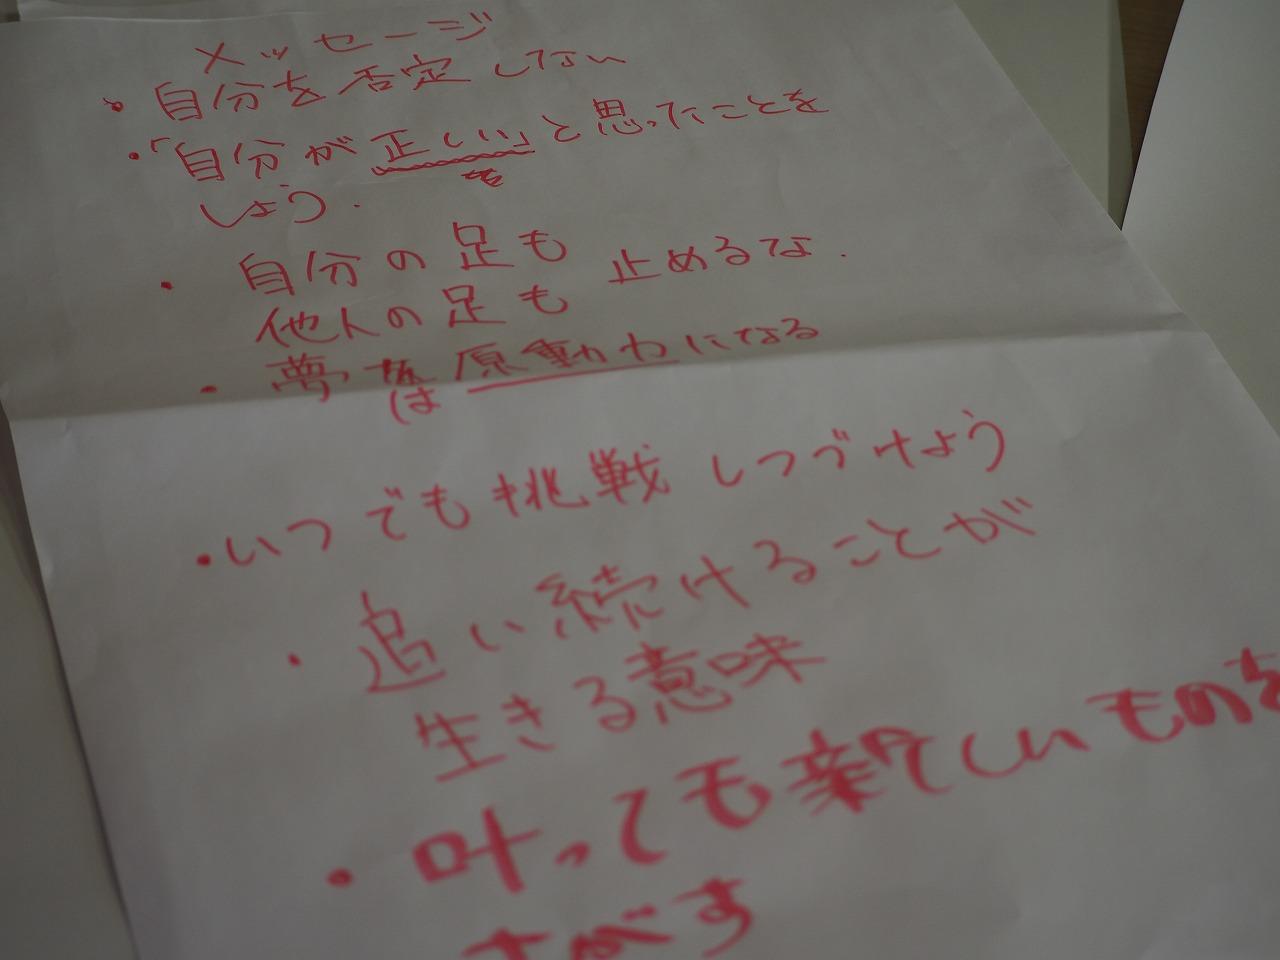 メッセージ
・自分を否定しない
・「自分が正しい」と思ったことを
しょう.
・自分の足も 止めるな.
他人の足も
・夢は原動力になる
・いつでも挑戦しつづけよう
・追い続けることが
生きる意味
・叶っても新しいものを
さがす